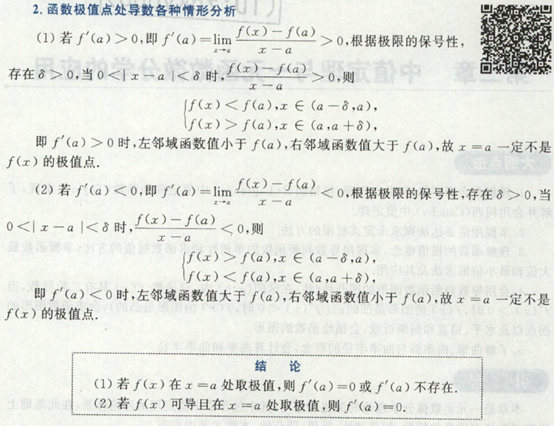 2. 函数极值点处导数各种情形分析
(1) 若 f′(a)>0,即 f′(a)=lim_{x→a} (f(x)−f(a))/(x−a) >0,根据极限的保号性,
存在 δ>0,当 0<|x−a|<δ 时, (f(x)−f(a))/(x−a) >0,则
f(x)<f(a),x∈(a−δ,a),
f(x)>f(a),x∈(a,a+δ),
即 f′(a)>0 时,左邻域函数值小于 f(a),右邻域函数值大于 f(a),故 x=a 一定不是
f(x) 的极值点.
(2) 若 f′(a)<0,即 f′(a)=lim_{x→a} (f(x)−f(a))/(x−a) <0,根据极限的保号性,存在 δ>0,当
0<|x−a|<δ 时, (f(x)−f(a))/(x−a) <0,则
f(x)>f(a),x∈(a−δ,a),
f(x)<f(a),x∈(a,a+δ),
即 f′(a)<0 时,左邻域函数值大于 f(a),右邻域函数值小于 f(a),故 x=a 一定不是
f(x) 的极值点.
结 论
(1) 若 f(x) 在 x=a 处取极值,则 f′(a)=0 或 f′(a) 不存在.
(2) 若 f(x) 可导且在 x=a 处取极值,则 f′(a)=0.